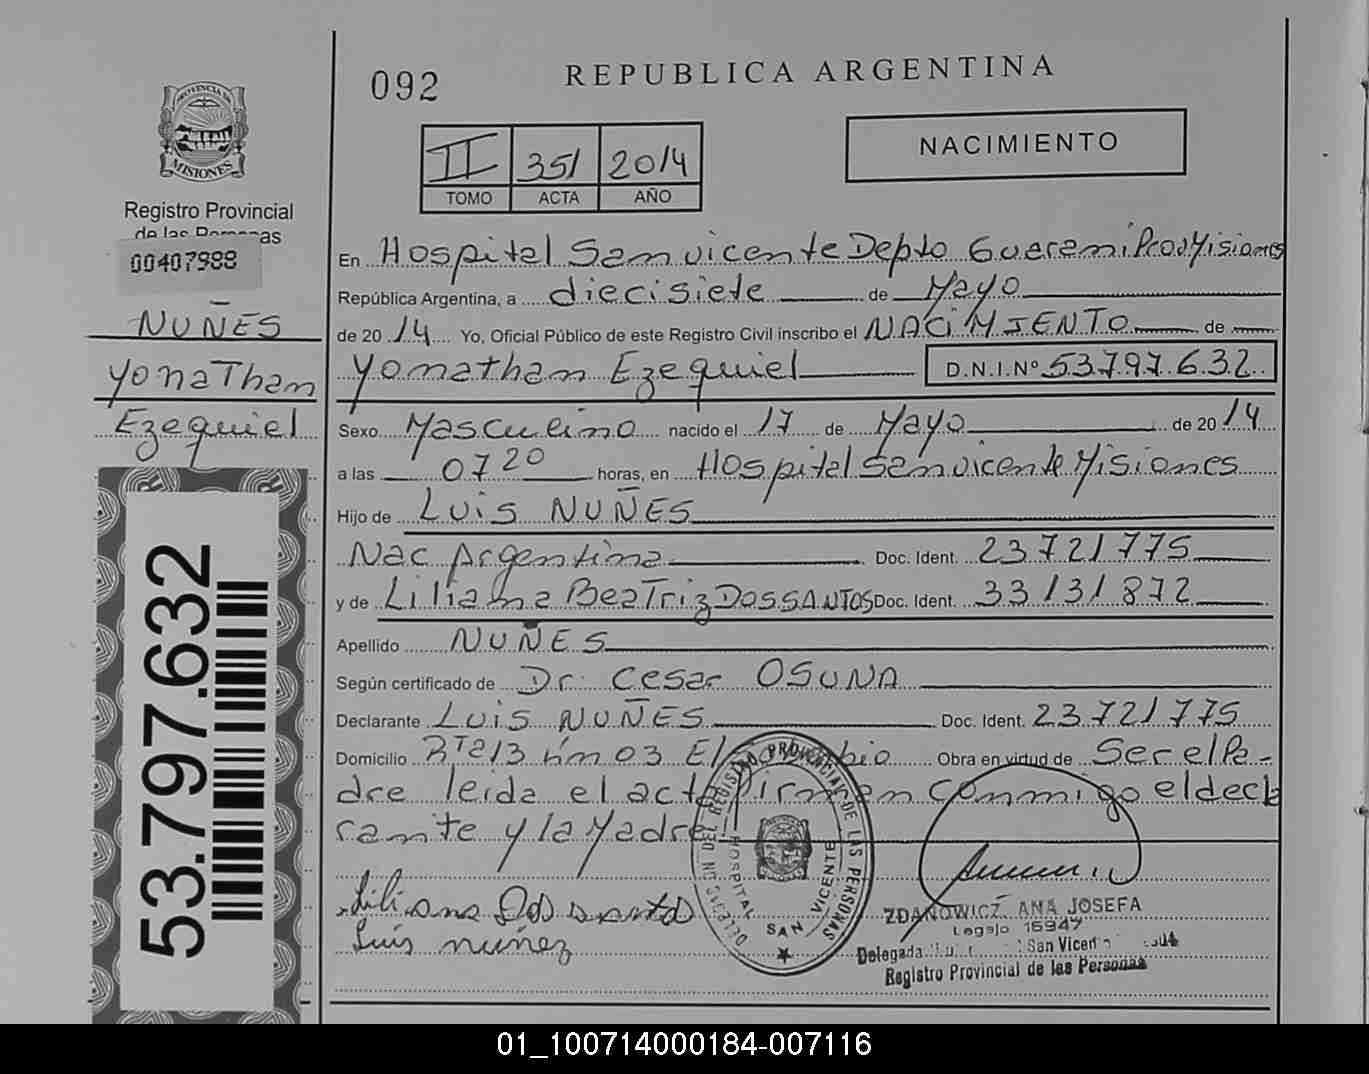 092
REPUBLICA ARGENTINA
II 351 2014
TOMO ACTA AÑO
NACIMIENTO
PROVINCIA DE
MISIONES
Registro Provincial
de las Personas
00407988
NUÑES
Yonathan
Ezequiel
53.797.632
En Hospital San vicente Depto Guarani Prov Misiones
República Argentina, a diecisiete de Mayo
de 2014 Yo, Oficial Público de este Registro Civil inscribo el NACIMIENTO de
Yonathan Ezequiel D.N.I.Nº 53.797.632
Sexo Masculino nacido el 17 de Mayo de 2014
a las 07 20 horas, en Hospital San vicente Misiones
Hijo de Luis NUÑES
Nac Argentina Doc. Ident. 23721775
y de Liliana Beatriz DOSSANTOS Doc. Ident. 33131872
Apellido NUÑES
Según certificado de Dr. Cesar OSUNA
Declarante Luis NUÑES Doc. Ident. 23721775
Domicilio Rta 13 km 03 El Obra en virtud de Ser el Pa-
dre leida el acta firman conmigo el decla
rante y la Madre
Liliana Dos santos
Luis nuñez
DELEGACION DEL REGISTRO PROVINCIAL DE LAS PERSONAS
HOSPITAL SAN VICENTE
ZDANOWICZ, ANA JOSEFA
Legajo 16947
Delegada San Vicen
Registro Provincial de las Personas
01_100714000184-007116